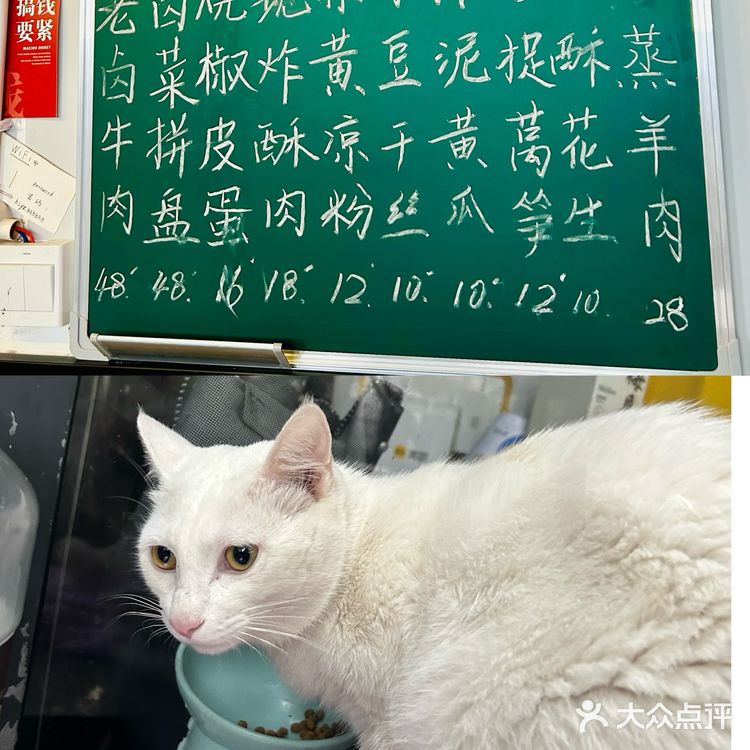 搞钱
要紧
MAKING MONEY
WiFi
password
老卤牛肉 48
卤菜拼盘 48
烧椒皮蛋 16
现炸酥肉 18
黄凉粉 12
豆干丝 10
泥黄瓜 10
捉莴笋 12
酥花生 10
蒸羊肉 28
大众点评